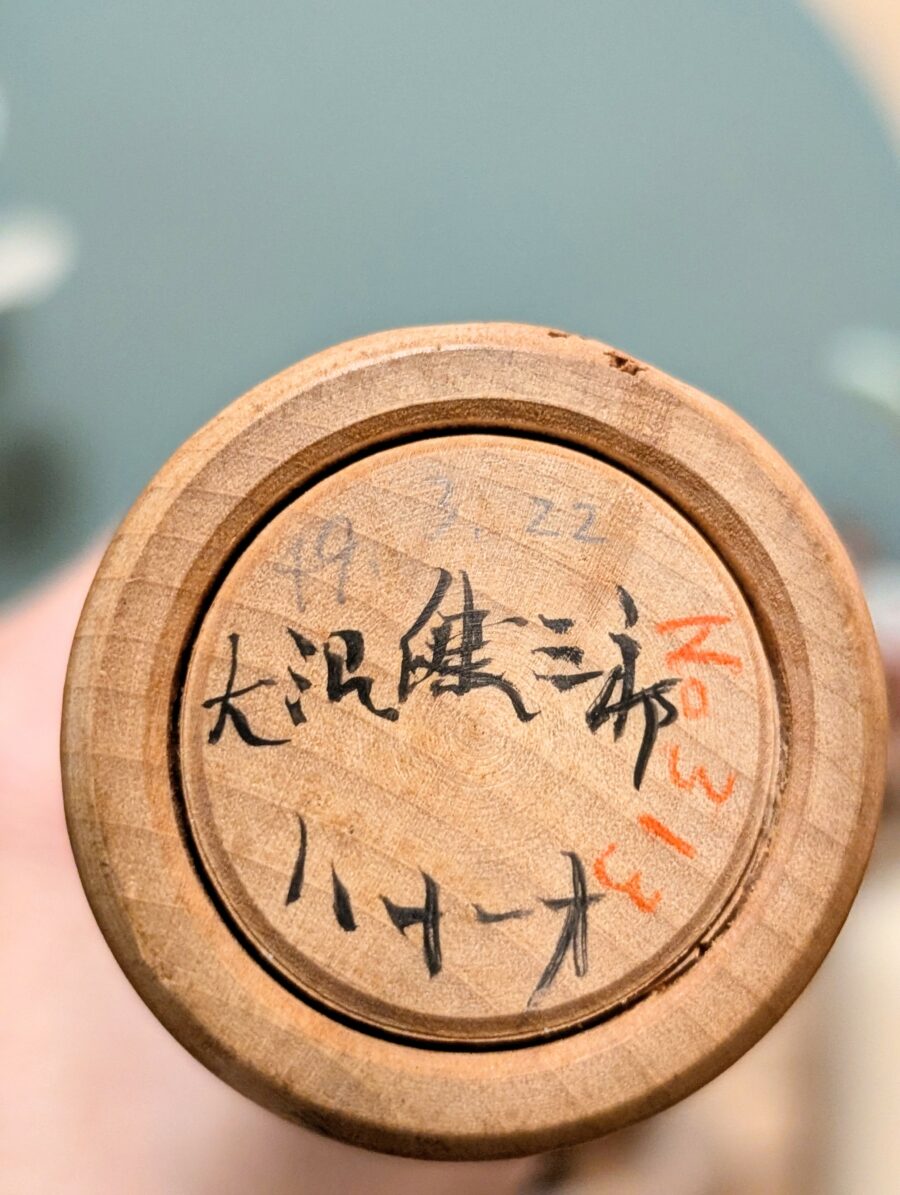 49. 3. 22
大沢健三郎
八十一才
No 313